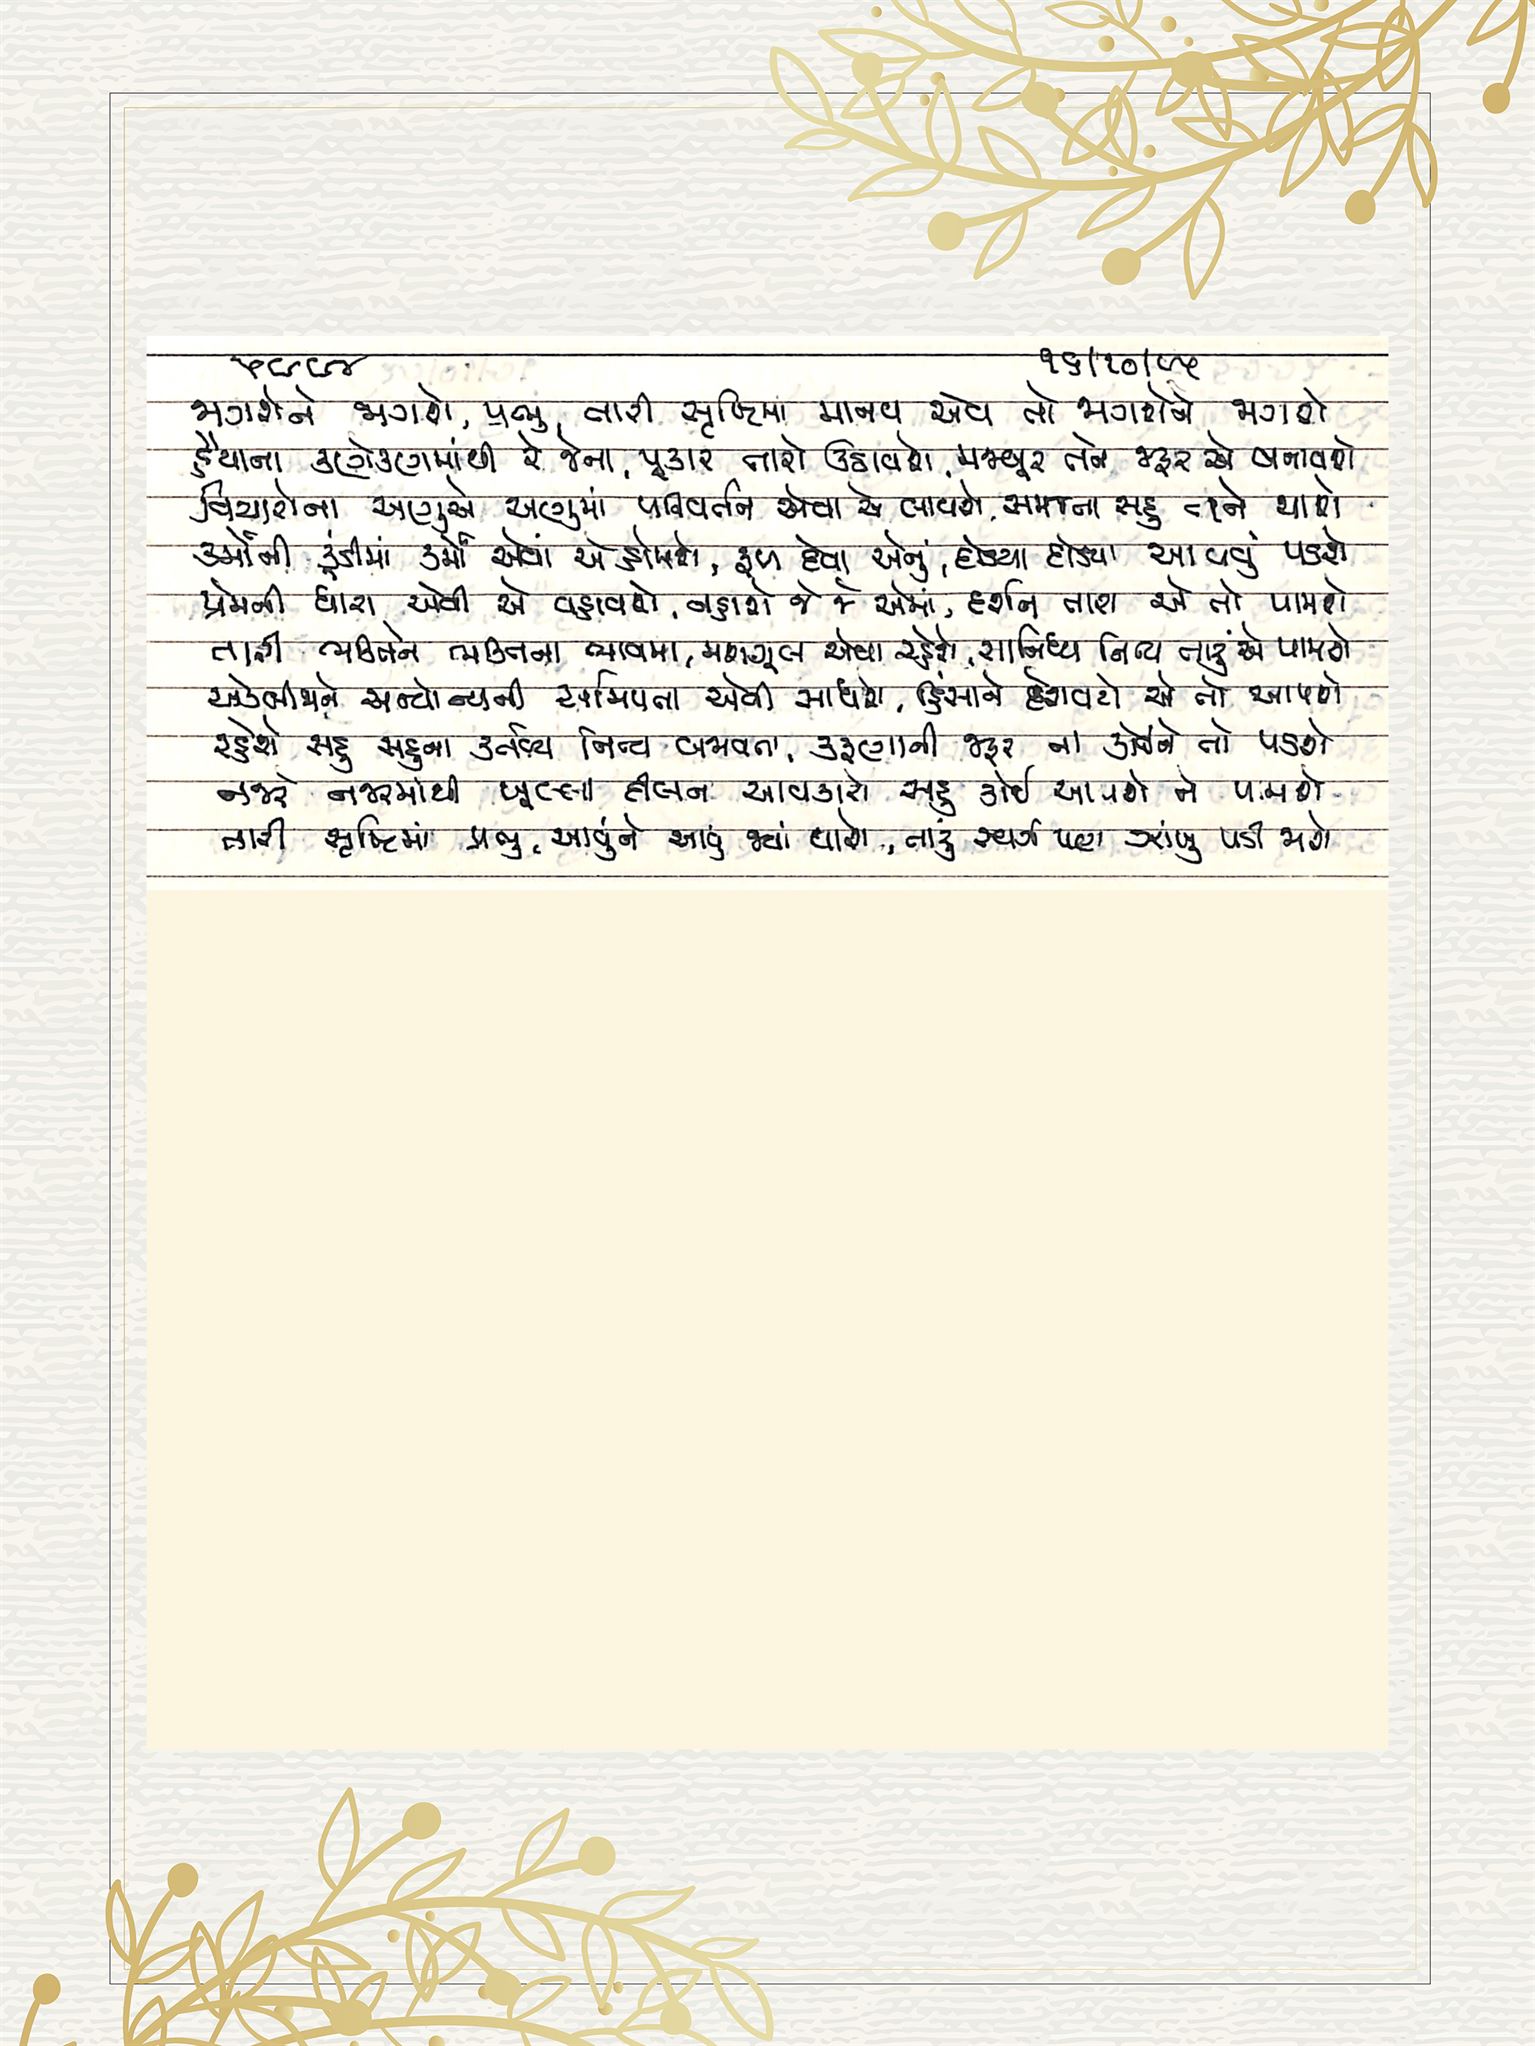 ૫૯૯૪ ૧૬/૧૦/૯૫
જાગશેને જાગશે, પ્રભુ, તારી સૃષ્ટિમાં માનવ એવ તો જાગશેને જાગશે
હૈયાના કણેકણમાંથી રે જેના, પૂકાર તારો ઉઠાવશે, મજબૂર તને જરૂર એ બનાવશે
વિચારોના અણુએ અણુમાં પરિવર્તન એવા એ લાવશે, સમજના સહુ તને થાશે
કર્મોની કૂંડીમાં કર્મો એવાં એ હોમશે, ફળ દેવા એનું, દોડયા દોડયા આવવું પડશે
પ્રેમની ધારા એવી એ વહાવશે, નહાશે જે જે એમાં, દર્શન તારા એ તો પામશે
તારી ભક્તિને ભક્તિના ભાવમા, મશગૂલ એવા રહેશે, સાનિધ્ય નિત્ય તારું એ પામશે
એકબીજાને અન્યોન્યની સમિપતા એવી સાધશે, હિંસાને દેશવટો એ તો આપશે
રહેશે સહુ સહુના કર્તવ્ય નિત્ય બજાવતા, કરૂણાની જરૂર ના કોઈને તો પડશે
નજરે નજરમાંથી ખૂલ્લા દીલના આવકારો સહુ કોઈ આપશે ને પામશે
તારી સૃષ્ટિમાં પ્રભુ, આવુંને આવું જ્યાં થાશે, તારું સ્વર્ગ પણ ઝાંખુ પડી જાશે